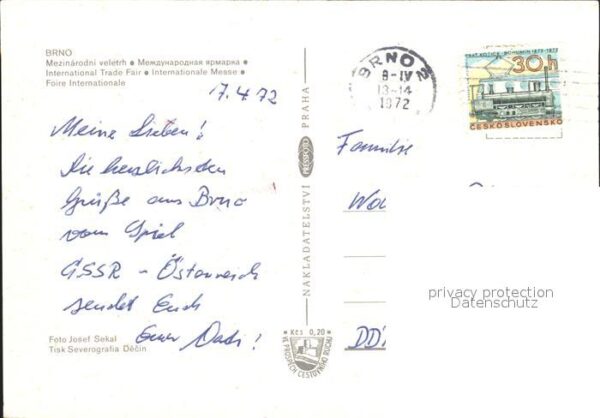 BRNO
Mezinárodní veletrh ● Международная ярмарка ●
International Trade Fair ● Internationale Messe ●
Foire Internationale
17.4.72
Meine Lieben!
Die herzlichsten
Grüße aus Brno
vom Spiel
ČSSR - Österreich
sendet Euch
Euer Dadi!
Foto Josef Sekal
Tisk Severografia Děčín
NAKLADATELSTVÍ PRESSFOTO PRAHA
Kčs 0,20
VE PROSPĚCH CESTOVNÍHO RUCHU
BRNO 2
8-IV
13-14
1972
KOŠICE BOHUMÍN 1872-1972
30 h
ČESKOSLOVENSKO
Familie
privacy protection
Datenschutz